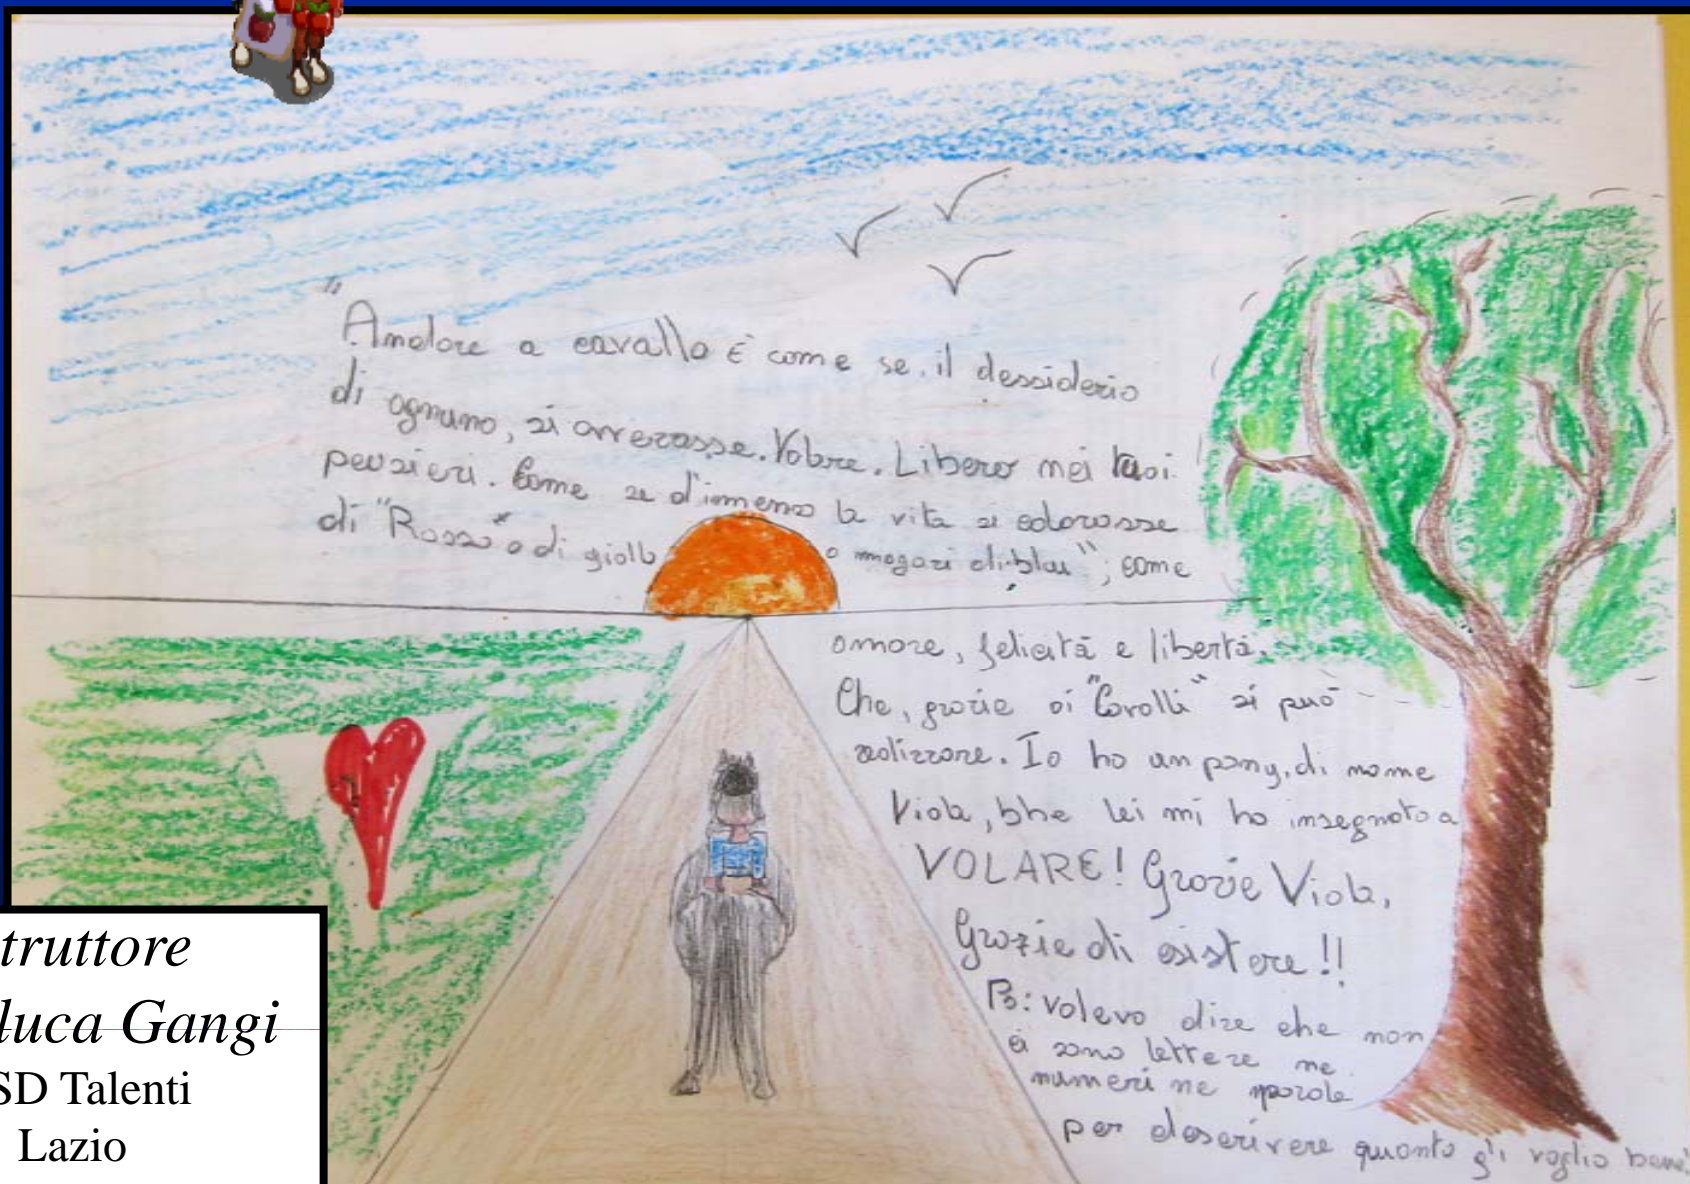 "
Andare a cavallo È come se il dessiderio
di ognuno, si avverasse. Volare. Libero nei tuoi
pensieri. Come se d'immenso la vita si colorasse
di "Rosso" o di giallo o magari di blu"; come
amore, felicità e libertà.
Che, grazie ai "Cavalli" si può
realizzare. Io ho un pony, di nome
Viola, bhe lei mi ha insegnato a
VOLARE! Grazie Viola,
Grazie di esistere!!
Ps: volevo dire che non
ci sono lettere ne
numeri ne parole
per descrivere quanto gli voglio bene!
truttore
luca Gangi
SD Talenti
Lazio